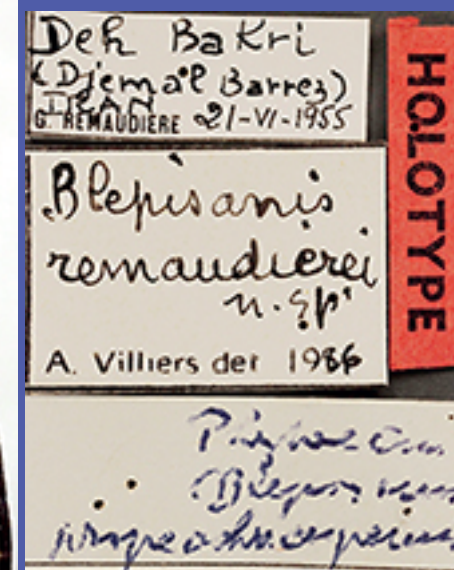 Deh Bakri
(Djemal Barrez)
IRAN
G. REMAUDIERE 21-VI-1955
HOLOTYPE
Blepisanis
remaudierei
n. sp.
A. Villiers det 1986